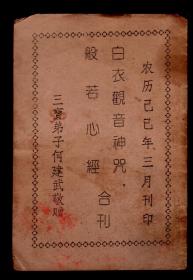 农历己巳年三月刊印
白衣觀音神咒
般若心經 合刊
三寶弟子何建武敬贈